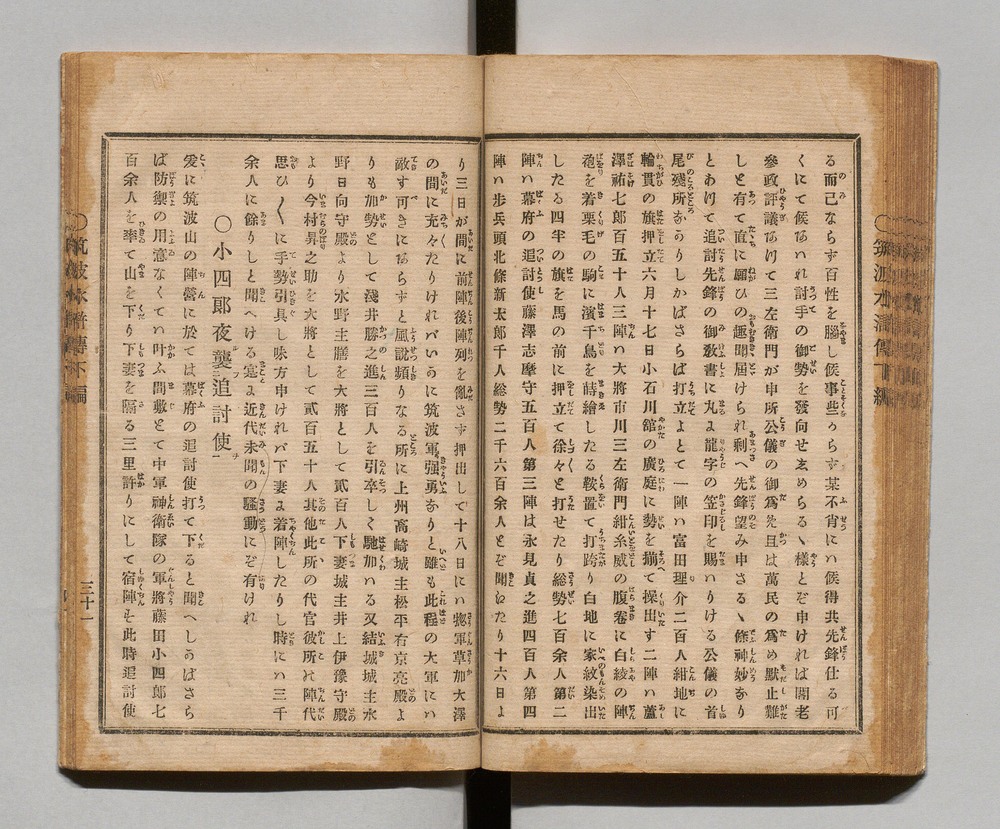 る而己ならす百性を腦し候事些のらす某不肖にハ候得共先鋒仕る可
くにて候なハれ討手の御勢を發向せ玄めらるゝ樣とぞ申ければ閣老
參政評議なけて三左衛門が申所公儀の御爲先且は萬民の爲め默止難
しと有て直に願ひの趣聞届けられ剩へ先鋒望み申さるゝ條神妙なり
とあけて追討先鋒の御敎書に丸よ龍字の笠印を賜ハりける公儀の首
尾殘所なりしかばさらば打立よとて一陣ハ富田理介二百人紺地に
輪貫の旗押立六月十七日小石川館の廣庭に勢を揃て操出す二陣ハ蘆
澤祐七郎百五十人三陣ハ大將市川三左衛門紺糸威の腹卷に白綾の陣
袍を着栗毛の駒に濱千鳥を蒔繪したる鞍置て打跨り白地に家紋染出
したる四半の旗を馬の前に押立て徐々と打せたり總勢七百余人第二
陣ハ幕府の追討使藤澤志摩守五百人第三陣は永見貞之進四百人第四
陣ハ歩兵頭北條新太郎千人総勢二千六百余人とぞ聞えたり十六日よ
り三日が間に前陣後陣列を亂さす押出して十八日にハ惣軍草加大澤
の間に充々たりけれバいうに筑波軍强勇なりと雖も此程の大軍にハ
敵す可きにはらすと風説頻りなる所に上州高崎城主松平右京亮殿よ
りも加勢として淺井勝之進三百人を引卒しく馳加ハる又結城城主水
野日向守殿より水野主膳を大將として貳百人下妻城主井上伊豫守殿
より今村昇之助を大將として貳百五十人其他此所の代官彼所の陣代
思ひ〱に手勢引具し味方申けれバ下妻よ着陣したりし時にハ三千
余人に餘りしと聞へける寔よ近代未聞の騷動にぞ有けれ
〇小四郎夜襲追討使一
爰に筑波山の陣營に於ては幕府の追討使打て下ると聞へしのばさら
ば防禦の用意なくてハ叶ふ間敷とて中軍神衛隊の軍將藤田小四郎七
百余人を率て山を下り下妻を隔る三里許りにして宿陣を此時追討使
三十一